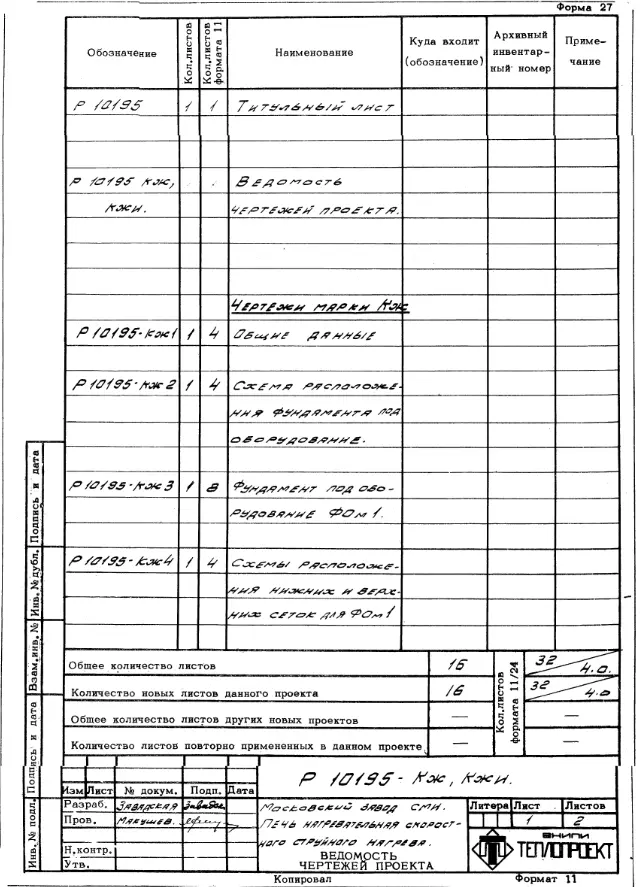 Форма 27
Обозначение
Кол.листов
Кол.листов формата 11
Наименование
Куда входит (обозначение)
Архивный инвентар- ный номер
Приме- чание
Р 10195 1 1 Титульный лист
Р 10195 КЖ, Ведомость
КЖИ. чертежей проекта.
Чертежи марки КЖ
Р 10195-КЖ1 1 4 Общие данные
Р 10195-КЖ2 1 4 Схема расположе-
ния фундамента под
оборудование.
Р 10195-КЖ3 1 8 Фундамент под обо-
рудование ФОм1.
Р 10195-КЖ4 1 4 Схемы расположе-
ния нижних и верх-
них сеток для ФОм1
Общее количество листов 16
Количество новых листов данного проекта 16
Общее количество листов других новых проектов —
Количество листов повторно примененных в данном проекте —
Кол.листов формата 11/24
32 4.0.
32 4.0
—
—
Подпись и дата
Инв.№ дубл.
Взам.инв.№
Подпись и дата
Инв.№ подл.
Изм Лист № докум. Подп. Дата
Разраб. Завадская
Пров. Макушев.
Н.контр.
Утв.
Р 10195- КЖ, КЖИ.
Московский завод СМИ.
Печь нагревательная скорост-
ного струйного нагрева.
ВЕДОМОСТЬ
ЧЕРТЕЖЕЙ ПРОЕКТА
Литера Лист Листов
1 2
ВНИПИ
ТЕПЛОПРОЕКТ
Копировал Формат 11